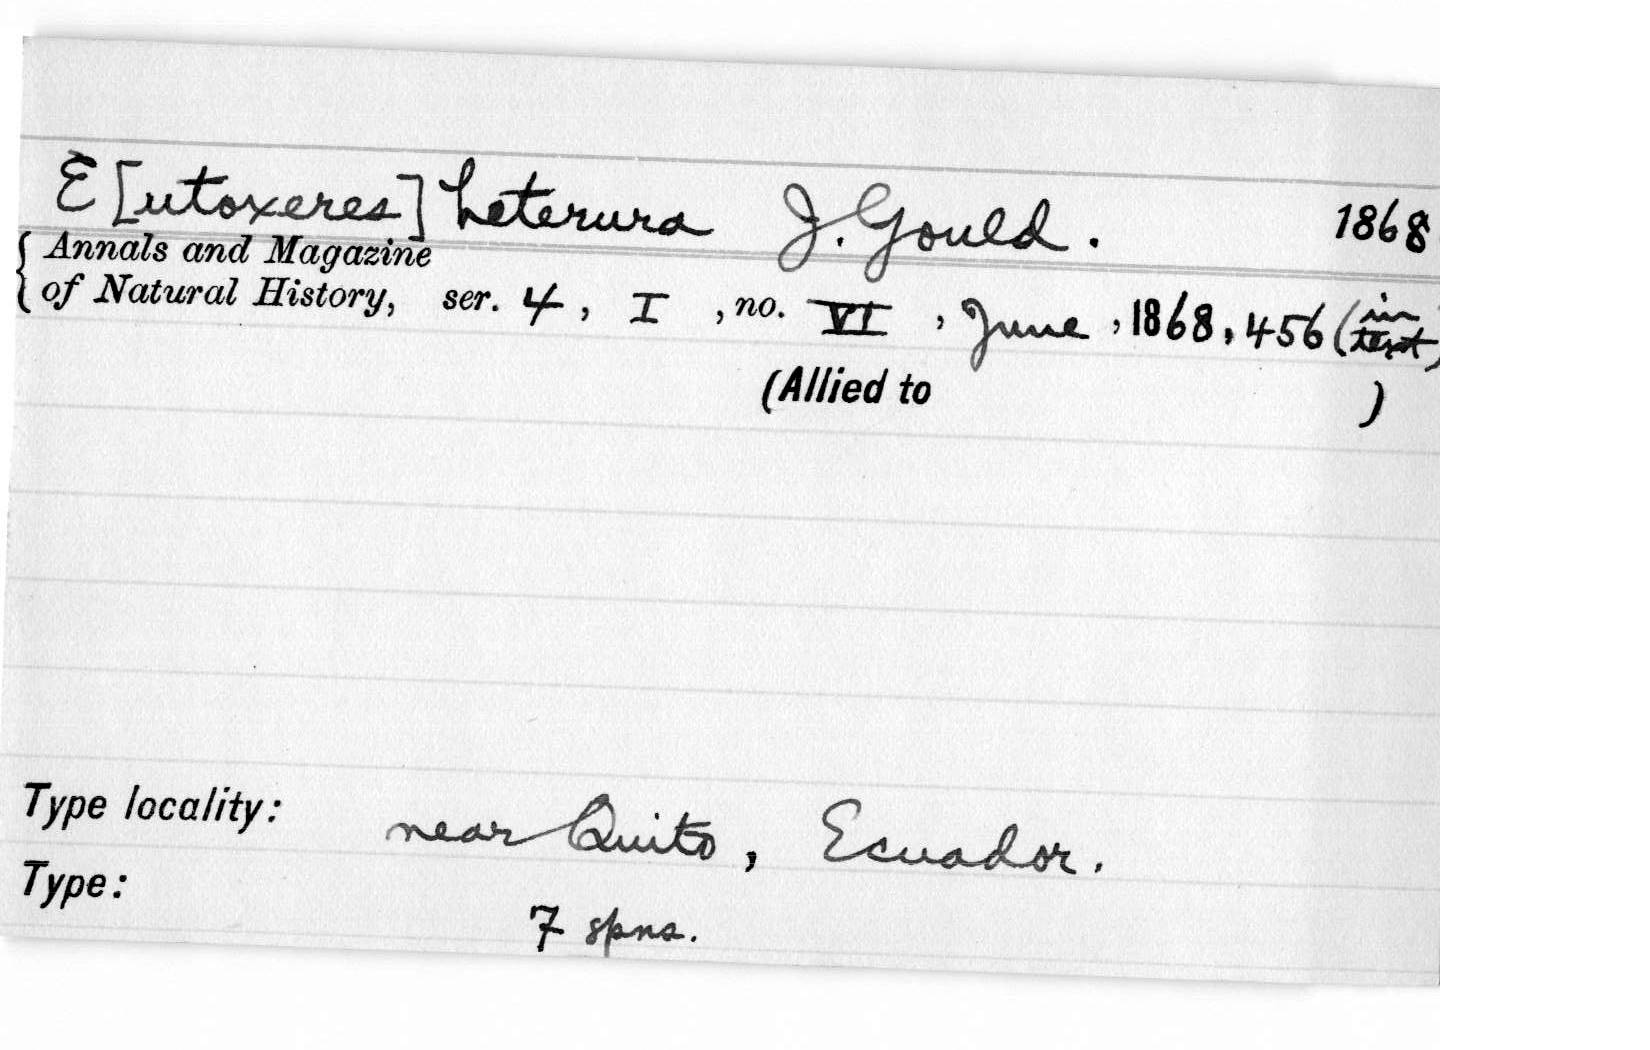 E[utoxeres] heterura J. Gould. 1868
Annals and Magazine
of Natural History, ser. 4, I, no. VI, June, 1868, 456 (in text)
(Allied to )
Type locality: near Quito, Ecuador.
Type: 7 spns.